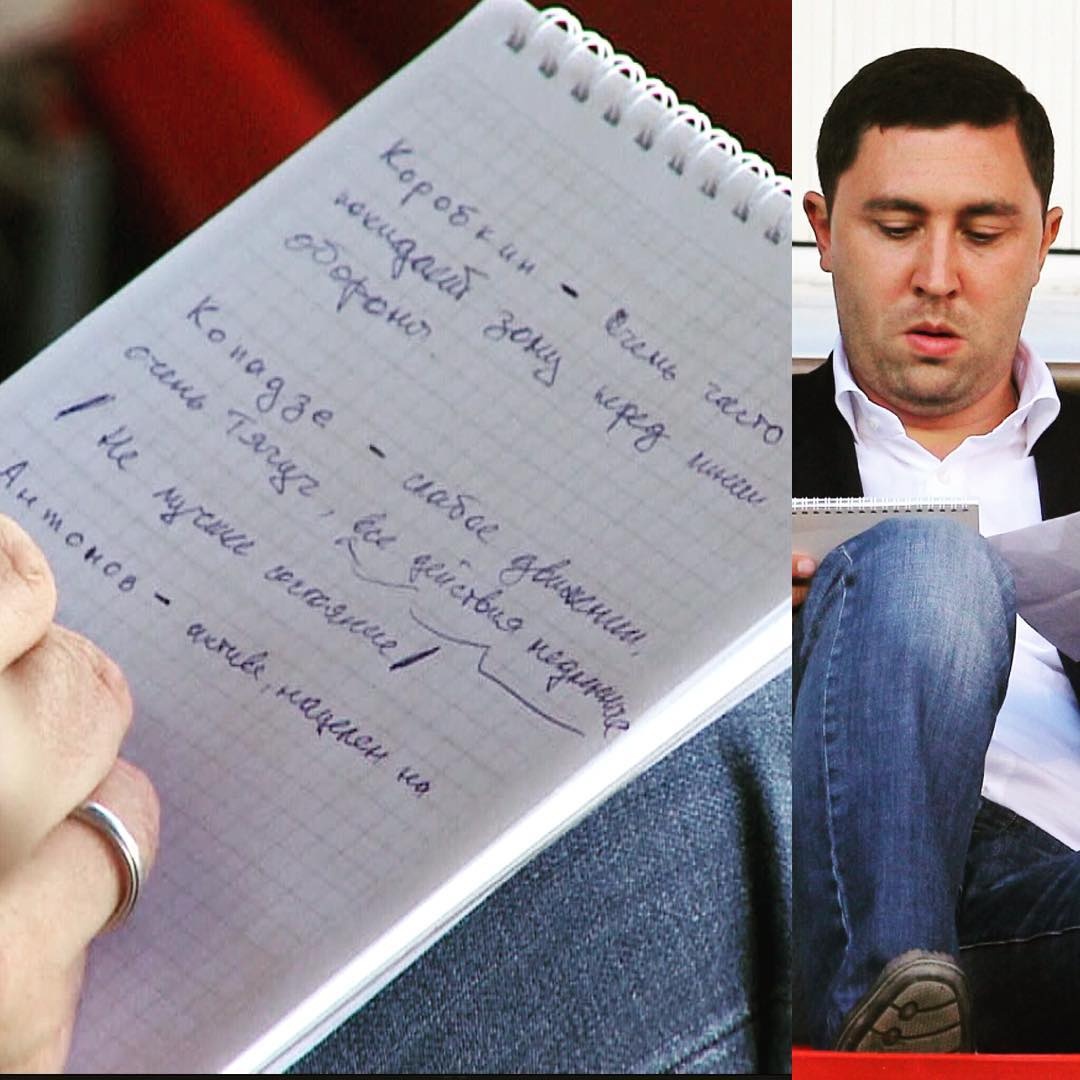 Коробкин - Очень часто
покидает зону перед линии
обороны.
Кападзе - слабое движении,
очень тягуч, все действия
/ Не лучшее состояние /
Антонов - активе, нацелен на